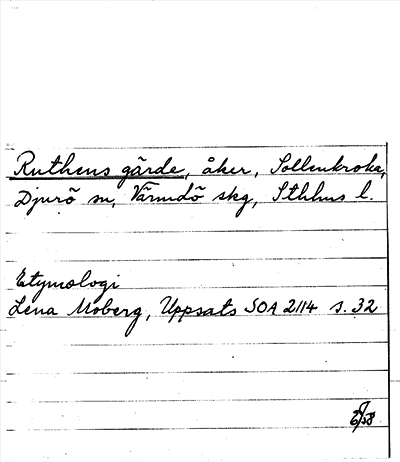 Ruthens gärde, åker, Sollenkroka,
Djurö sn, Värmdö skg, Sthlms l.
Etymologi
Lena Moberg, Uppsats SOA 2114 s. 32